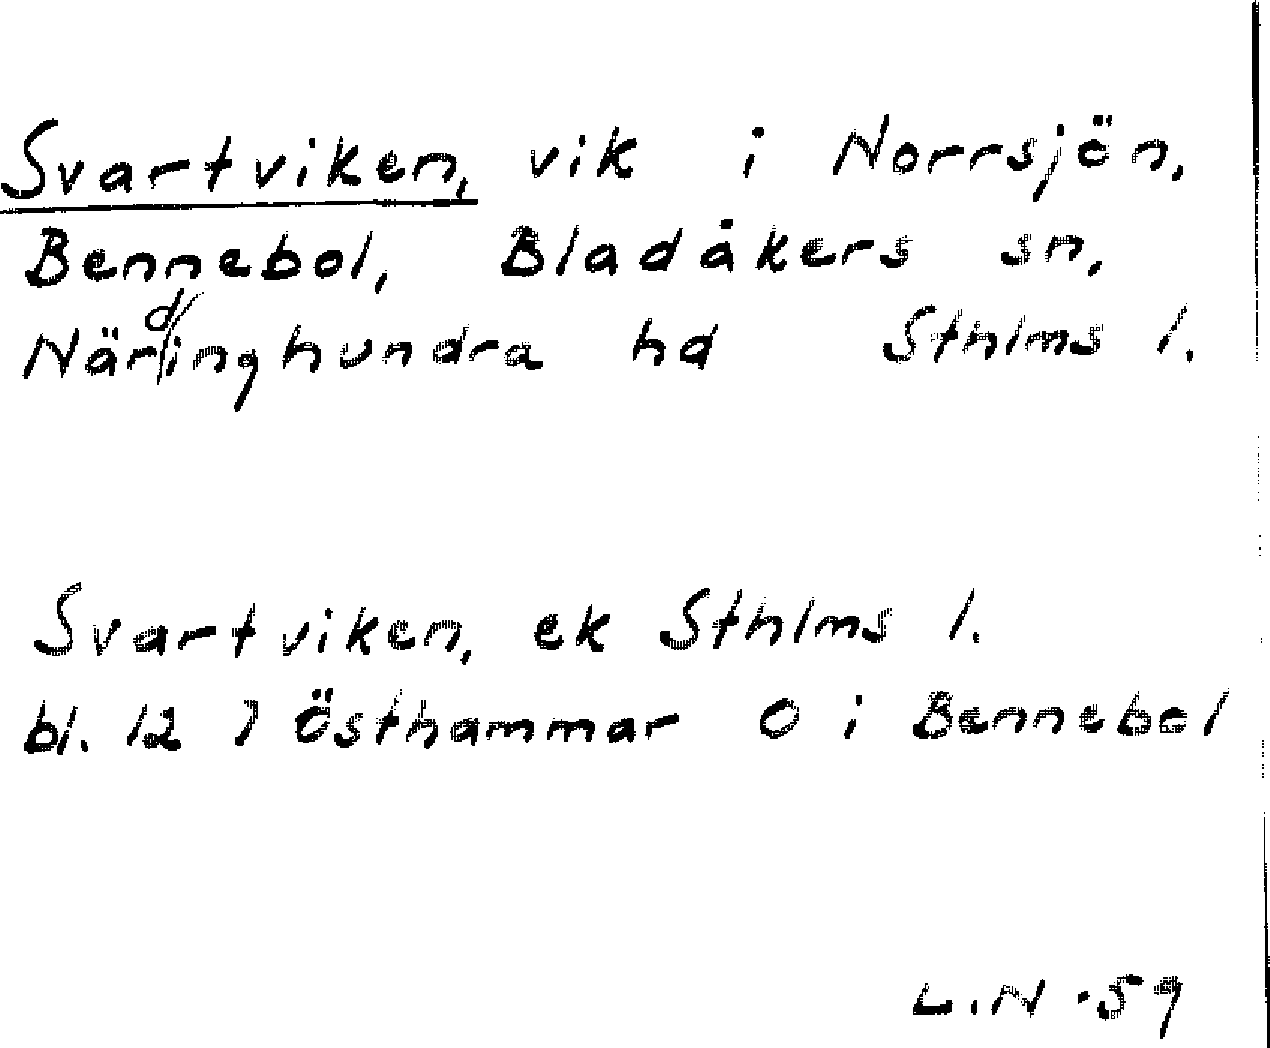 Svartviken, vik i Norrsjön,
Bennebol, Bladåkers sn,
Närdinghundra hd Sthlms l.
Svartviken, ek Sthlms l.
bl. 12 Östhammar O i Bennebol
L.N -59